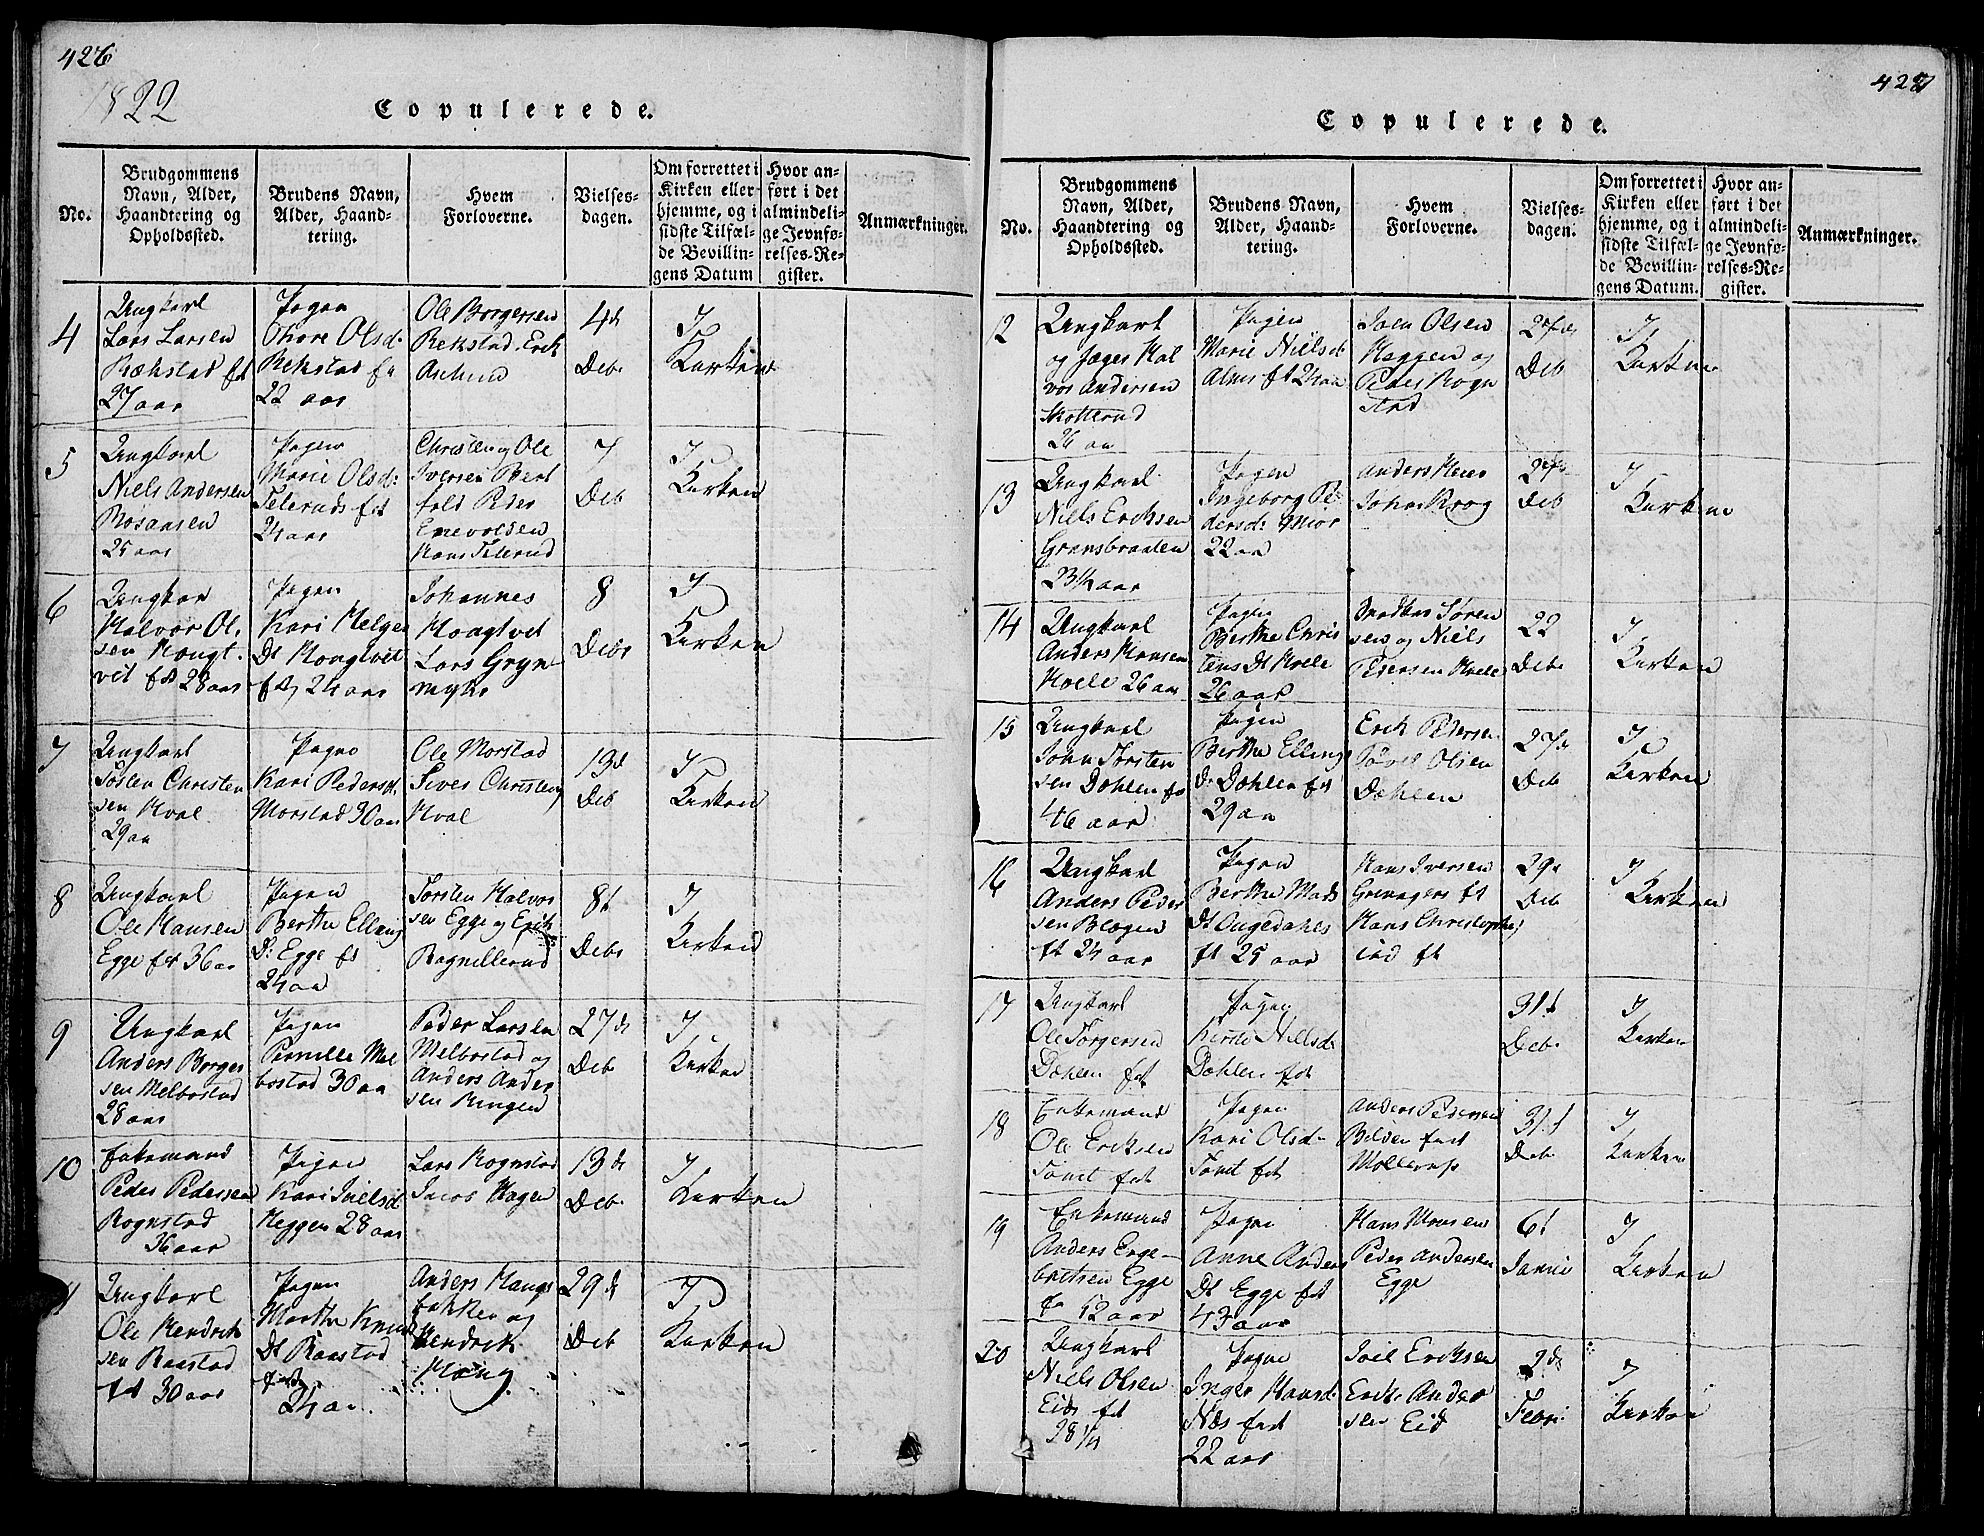 426
1822
Copulerede.
No.
Brudgommens
Navn, Alder,
Haandtering og
Opholdssted.
Brudens Navn,
Alder, Haand-
tering.
Hvem
Forloverne.
Vielses-
dagen.
Om forrettet i
Kirken eller
hjemme, og i
sidste Tilfæl-
de Bevillin-
gens Datum
Hvor an-
ført i det
almindeli-
ge Jevnfø-
relses-Re-
gister.
Anmærkninger.
4
Ungkarl
Lars Larsen
Rækstad fdt
27 aar
Pigen
Thore Olsd:
Rekstad fu
22 aar
Ole Borgersen
Rekstad. Erik
Aslund
4d
Debr
I
Kirken
5
Ungkarl
Niels Andersen
Rosaasen
25 aar
Pigen
Marie Olsd:
Telerud fdt
24 aar
Christen og Ole
Iversen
Peder
Enevoldsen
Hans Telerud
7
Deb
I
Kirken
6
Ungkar
Halvor Ol,
sen Hougt.
vit fdt 28 aar
Pigen
Kari Helge
Dt Hougtvet
24 aar
Johannes
Hougtvet
Lars Gryn
myhr
8
Debr
I
Kirken
7
Ungkarl
Tosten Christen
sen Hval
29 aa
Pigen
Kari Pedersdt.
Morstad 30 aar
Ole Morstad
Siver Christens
Hval
13d
Deb
I
Kirken
8
Ungkarl
Ole Hansen
Egge fdt 36 aar
Pigen
Berthe Elling
D: Egge ft
24 aa
Torsten Halvor
sen Egge og Erik
Bagnillerud
8t
Debr
I
Kirken
9
Ungkarl
Anders Borger
sen Melbostad
28 aar
Pigen
Pernille Mel
bostad 30 aa
Peder Larsen
Melbostad og
Anders Ander
sen Ringen
27 d
Deb
I
Kirken
10
Enkemand
Peder Pedersen
Rognstad
36 aar
Pigen
Kari
Heggen 28 aar
Lars Rognstad
Jacob Hagen
13 d
Debr
I
Kirken
11
Ungkarl
Ole Hendrik
sen Raastad
fdt 30 aar
Pigen
Marthe Knud
Dt Raastad
fdt
24 aa
Anders Haugs
bakken og
Hendrik
Haug
29 d
Deb
I
Kirken
427
Copulerede.
No.
Brudgommens
Navn, Alder,
Haandtering og
Opholdssted.
Brudens Navn,
Alder, Haand-
tering.
Hvem
Forloverne.
Vielses-
dagen.
Om forrettet i
Kirken eller
hjemme, og i
sidste Tilfæl-
de Bevillin-
gens Datum.
Hvor an-
ført i det
almindeli-
ge Jevnfø-
relses-Re-
gister.
Anmærkninger.
12
Ungkarl
og Jæger Hal
vor Andersen
Skotterud
26 aa
Pigen
Marie Nielsd:
Alms ft 24 aa
Joen Olsen
Heggen og
Peder Rogn
stad
Deb
I
Kirken
13
Ungkarl
Niels Eriksen
Gransbraaten
23½ aar
Pigen
Ingeborg Pe
dersd: Moe
22 aa
Anders Hans
Johan Krog
Deb
I
Kirken
14
Ungkarl
Anders Hansen
Hoele 26 aar
Pigen
Berthe Chris
tens Dt Hvele
26 aar
Søren
sen og Niels
Pedersen Hvele
22
Debr
I
Kirken
15
Ungkarl
John Torsten
sen Dohlen fr
46 aar
Pigen
Berthe Elling
D: Dohlen fdt
29 aa
Erik Pedersen
Olsen
Dæhlen
27d
Deb
I
Kirken
16
Ungkarl
Anders Peder
sen Blegen
ft 24 aar
Pigen
Berthe Mads
Dt Augedahls
ft 25 aar
Hans Iversen
Grenagers ft
Hans Christophe
rud ft
29d
Deb
I
Kirken
17
Ungkarl
Ole Torgersen
Dæhlen fdt
Pigen
Kirsti Nielsd:
Dohlen fdt
31t
Debr
I
Kirken
18
Enkemand
Ole Eriksen
Tomt fdt
Pigen
Kari Olsd:
Tomt fdt
Anders Pedersen
Bilden født
Mollerup
31t
Deb
I
Kirken
19
Enkemand
Anders Enge-
bretsen Egge
fr 52 aar
Pigen
Anne Anders
Dt Egge fdt
43 aar
Hans Monsen
Peder Andersen
Egge
6t
Janui
I
Kirken
20
Ungkarl
Niels Olsen
Eids fdt
28 ¼
Pigen
Inger Hansd:
Næs født
22 aar
Joel Eriksen
Erik Ander
sen Eid
2d
Febri
I
Kirken